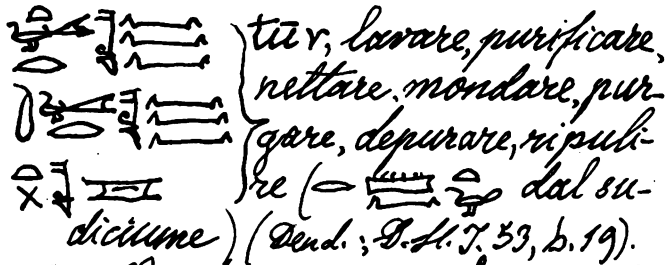 tūr, lavare, purificare,
nettare, mondare, pur-
gare, depurare, ripuli-
re ( dal su-
diciume) (Dend.; D.H.I. 53, b. 19).